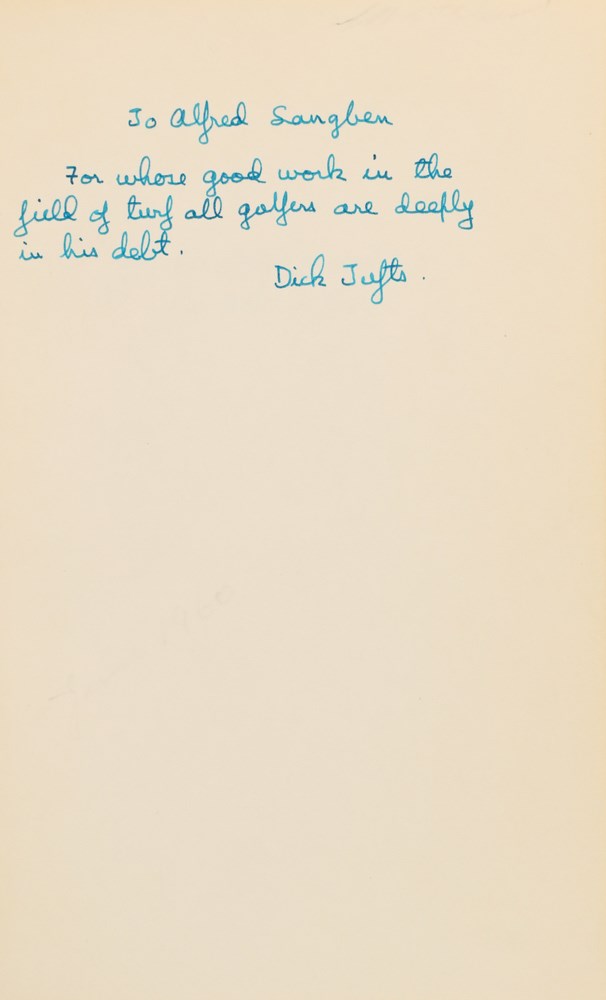 To Alfred Langben
For whose good work in the
field of turf all golfers are deeply
in his debt.
Dick Tufts.